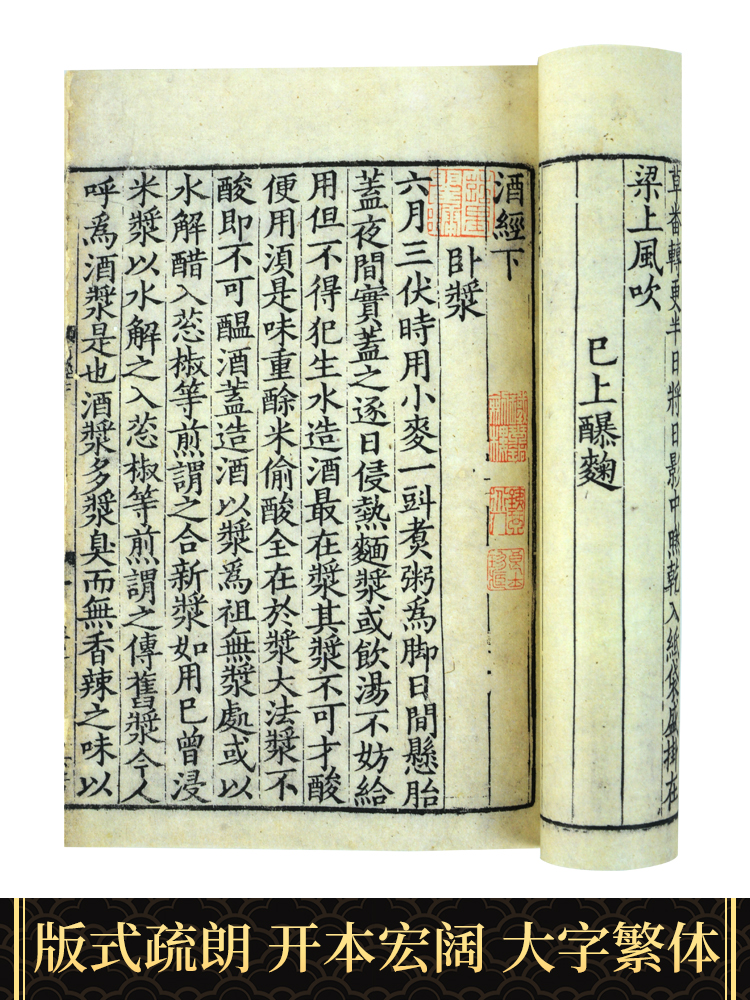 草番轉更半日將日影中乾入紙袋盛掛在
梁上風吹
已上醭麴
酒經下
卧漿
六月三伏時用小麥一㪷煑粥為脚日間懸胎
蓋夜間實蓋之逐日侵熱麵漿或飲湯不妨給
用但不得犯生水造酒最在漿其漿不可才酸
便用湏是味重酴米偷酸全在於漿大法漿不
酸即不可醖酒蓋造酒以漿爲祖無漿處或以
水解醋入葱椒等煎謂之合新漿如用已曾浸
米漿以水解之入葱椒等煎謂之傳舊漿今人
呼爲酒漿是也酒漿多漿臭而無香辣之味以
版式疏朗 开本宏阔 大字繁体